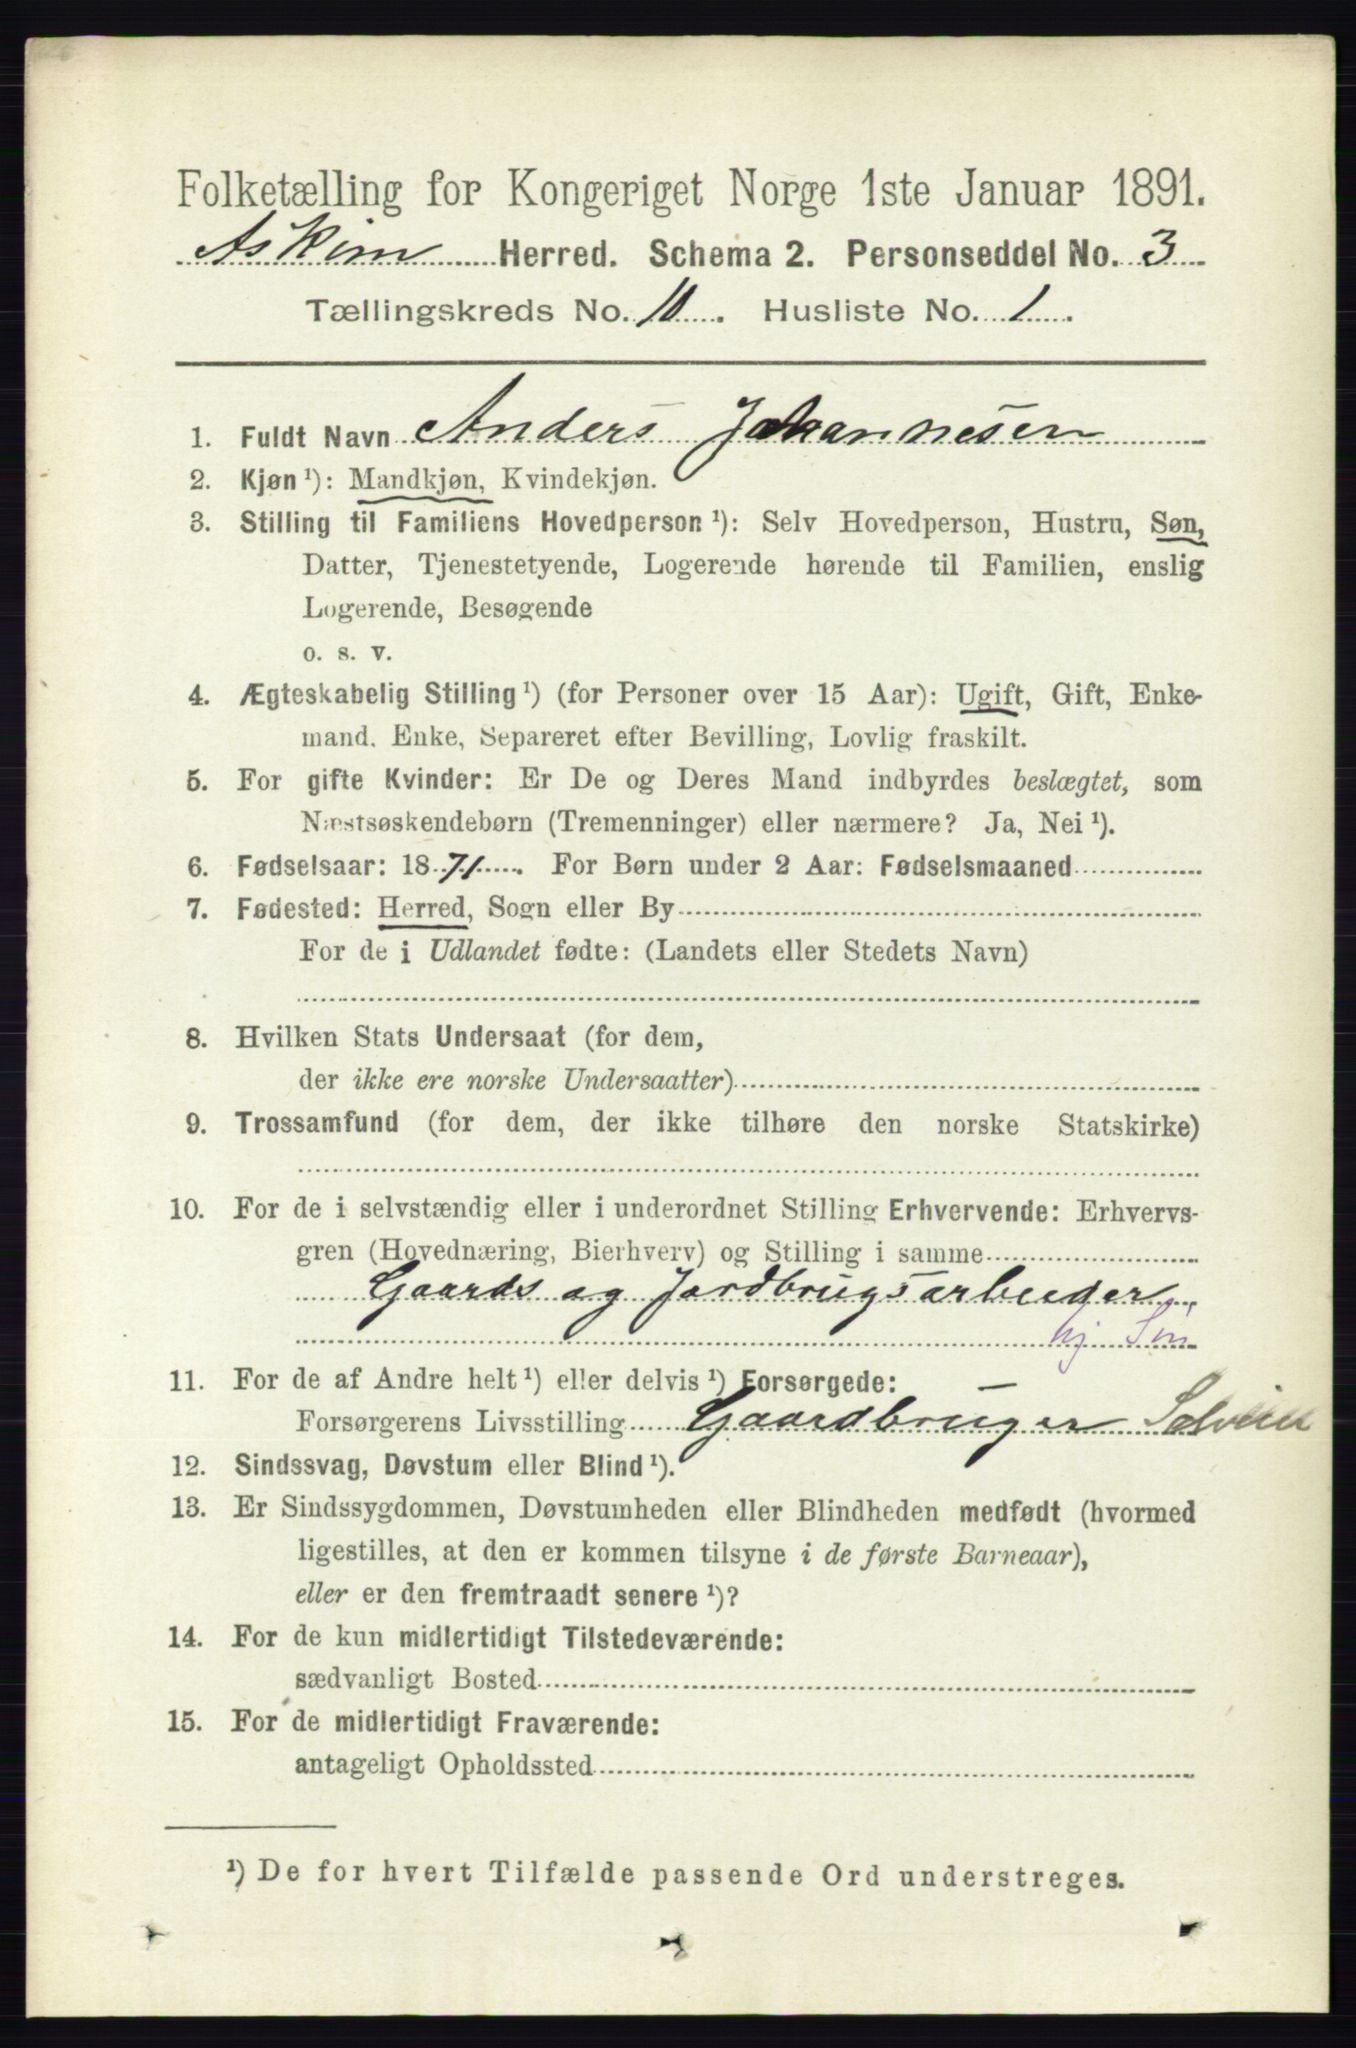 Folketælling for Kongeriget Norge 1ste Januar 1891.
Askim Herred. Schema 2. Personseddel No. 3
Tællingskreds No. 11. Husliste No. 1.
1. Fuldt Navn Anders Johannesen
2. Kjøn ¹): Mandkjøn, Kvindekjøn.
3. Stilling til Familiens Hovedperson ¹): Selv Hovedperson, Hustru, Søn,
Datter, Tjenestetyende, Logerende hørende til Familien, enslig
Logerende, Besøgende
o. s. v.
4. Ægteskabelig Stilling ¹) (for Personer over 15 Aar): Ugift, Gift, Enke-
mand, Enke, Separeret efter Bevilling, Lovlig fraskilt.
5. For gifte Kvinder: Er De og Deres Mand indbyrdes beslægtet, som
Næstsøskendebørn (Tremenninger) eller nærmere? Ja, Nei ¹).
6. Fødselsaar: 1871. For Børn under 2 Aar: Fødselsmaaned
7. Fødested: Herred, Sogn eller By
For de i Udlandet fødte: (Landets eller Stedets Navn)
8. Hvilken Stats Undersaat (for dem,
der ikke ere norske Undersaatter)
9. Trossamfund (for dem, der ikke tilhøre den norske Statskirke)
10. For de i selvstændig eller i underordnet Stilling Erhvervende: Erhvervs-
gren (Hovednæring, Bierhverv) og Stilling i samme
Gaards og Jordbrugsarbeider
hj. Søn
11. For de af Andre helt ¹) eller delvis ¹) Forsørgede:
Forsørgerens Livsstilling Gaardbruger Selveier
12. Sindssvag, Døvstum eller Blind ¹).
13. Er Sindssygdommen, Døvstumheden eller Blindheden medfødt (hvormed
ligestilles, at den er kommen tilsyne i de første Barneaar),
eller er den fremtraadt senere ¹)?
14. For de kun midlertidigt Tilstedeværende:
sædvanligt Bosted
15. For de midlertidigt Fraværende:
antageligt Opholdssted
¹) De for hvert Tilfælde passende Ord understreges.